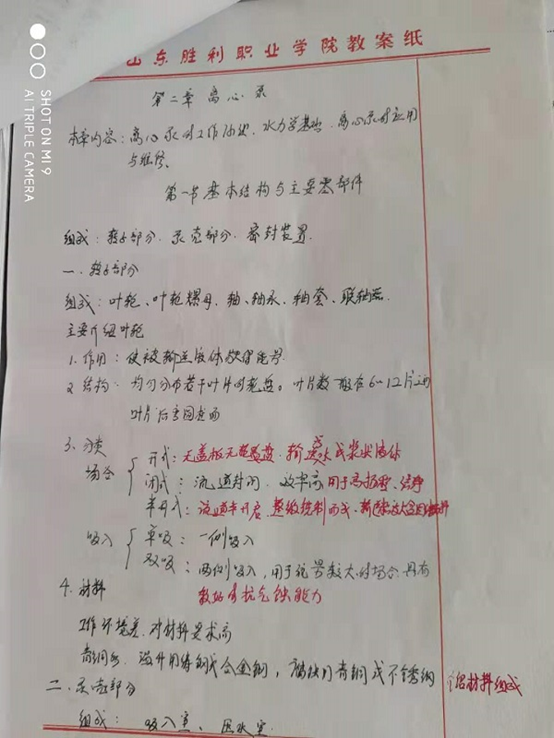 山东胜利职业学院教案纸
第二章 离心泵
本章内容：离心泵的工作原理、水力学基础、离心泵的应用
与维修、
第一节 基本结构与主要零部件
组成：转子部分、泵壳部分、密封装置.
一、转子部分
组成：叶轮、叶轮螺母、轴、轴承、轴套、联轴器.
主要介绍叶轮
1. 作用：使被输送液体获得能量
2. 结构：均匀分布若干叶片的轮盘。叶片数一般有6~12片
叶片
3. 分类
场合
开式：无盖板无轮盘、输送 浆状液体
闭式：流道封闭、效率高 用于高扬程、
半开式：流道半开启、
吸入
单吸：一侧吸入
双吸：两侧吸入，用于流量较大的场合 具有
较好的抗气蚀能力
4. 材料
工作环境差、对材料要求高
青铜 海井用铸钢或合金钢，腐蚀用青铜或不锈钢
材料组成
二、泵壳部分
组成：吸入室、压水室
SHOT ON MI 9
AI TRIPLE CAMERA